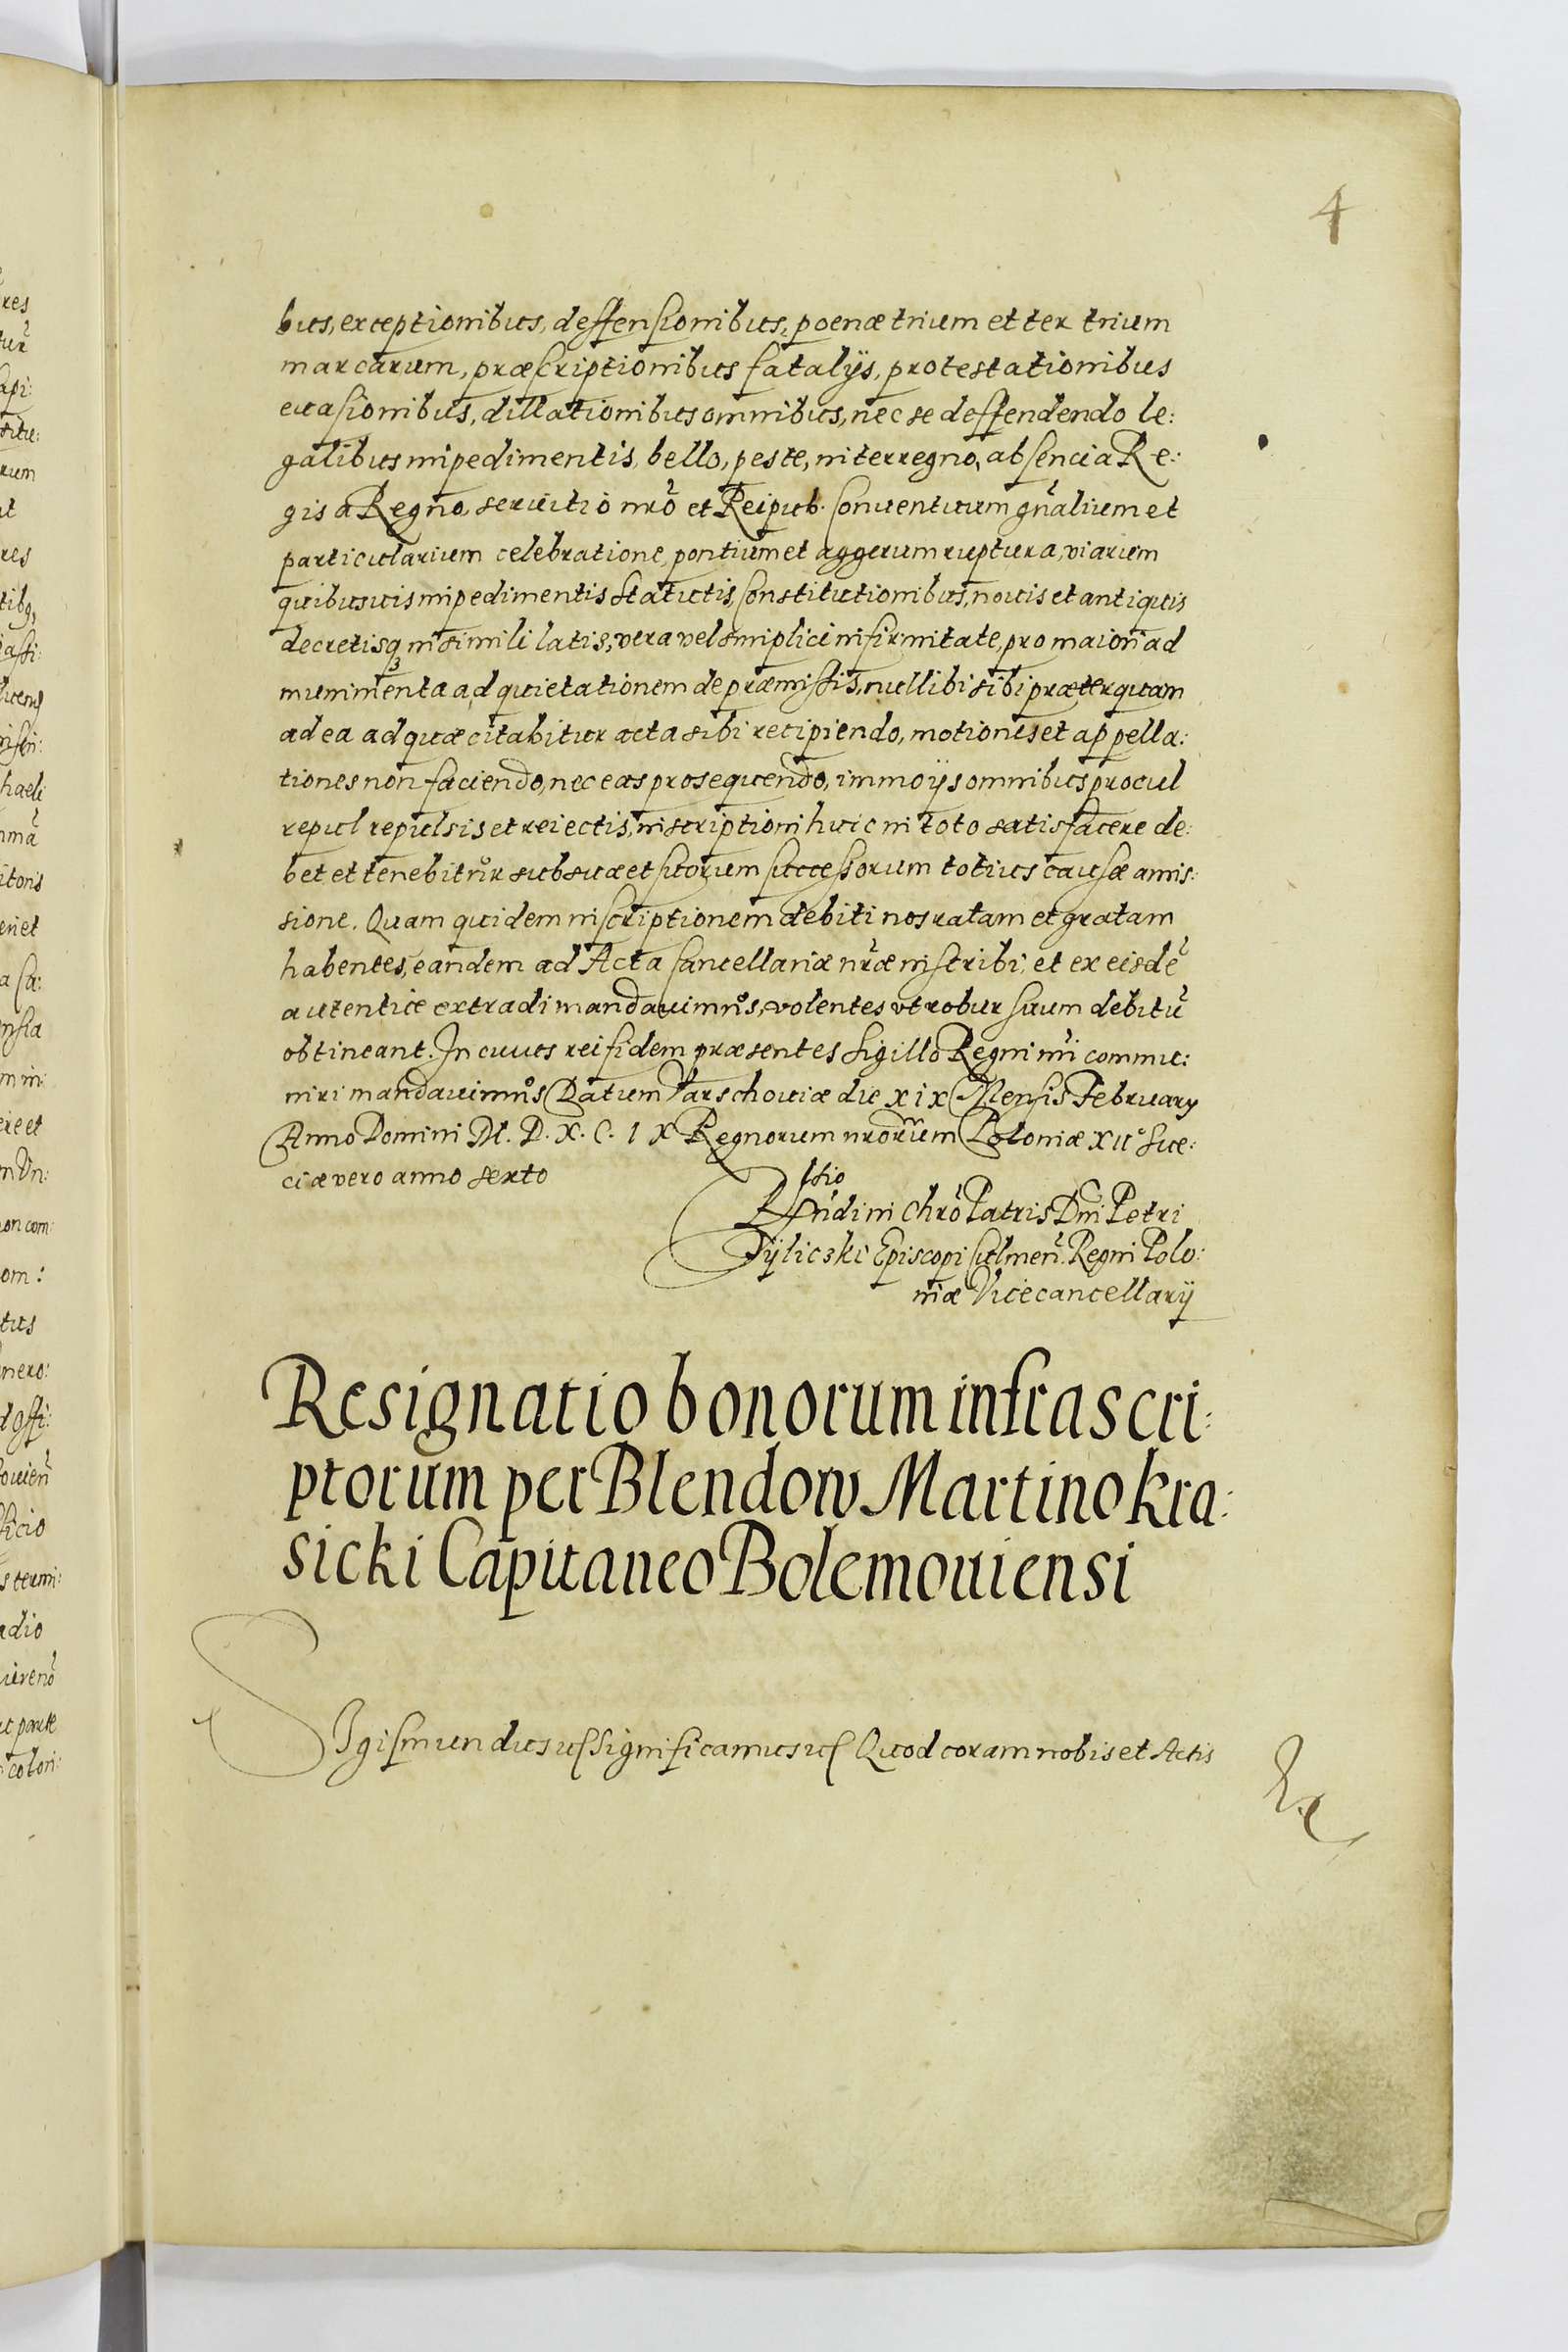 4
bus, exceptionibus, deffensionibus, poenæ trium et ter trium
marcarum, præscriptionibus fatalÿs, protestationibus
euasionibus, dillationibus omnibus, nec se deffendendo le:
galibus impedimentis, bello, peste, interregno, absencia Re:
gis a Regno, seruitio nrõ et Reipub. Conuentuum gñalium et
particularium celebratione, pontium et aggerum ruptura, viarum
quibusuis impedimentis Statutis, Constitutionibus, nouis et antiquis
decretisq3 in simili latis, vera vel simplici infirmitate, pro maiori ad
munimenta ad quietationem de præmissis, nullibi sibi præterquam
ad ea ad quæ citabitur acta sibi recipiendo, motiones et appella:
tiones non faciendo, nec eas prosequendo, immo ÿs omnibus procul
repul repulsis et reiectis, inscriptioni huic in toto satisfacere de:
bet et tenebitur sub sua et suorum successorum totius causæ amis:
sione. Quam quidem inscriptionem debiti nos ratam et gratam
habentes, eandem ad Acta Cancellariæ nr̃æ inscribi, et ex eisdẽ
autentice extradi mandauimus, volentes vt robur suum debitũ
obtineant. In cuius rei fidem præsentes Sigillo Regni nr̃i commu:
niri mandauimus Datum Varschouiæ die xix Mensis February
Anno Domini M. D. X. C. I X Regnorum nrorum Poloniæ xii° Sue:
ciæ vero anno sexto
Rñdi in Chrõ Patris Dñi Petri
Tÿliczki Episcopi Culmeñ. Regni Polo:
niæ Vicecancellarÿ
Resignatio bonorum infrascri:
ptorum per Blendow Martino kra:
sicki Capitaneo Bolemouiensi
Sigismundus uſ Significamus uſ Quod coram nobis et Actis